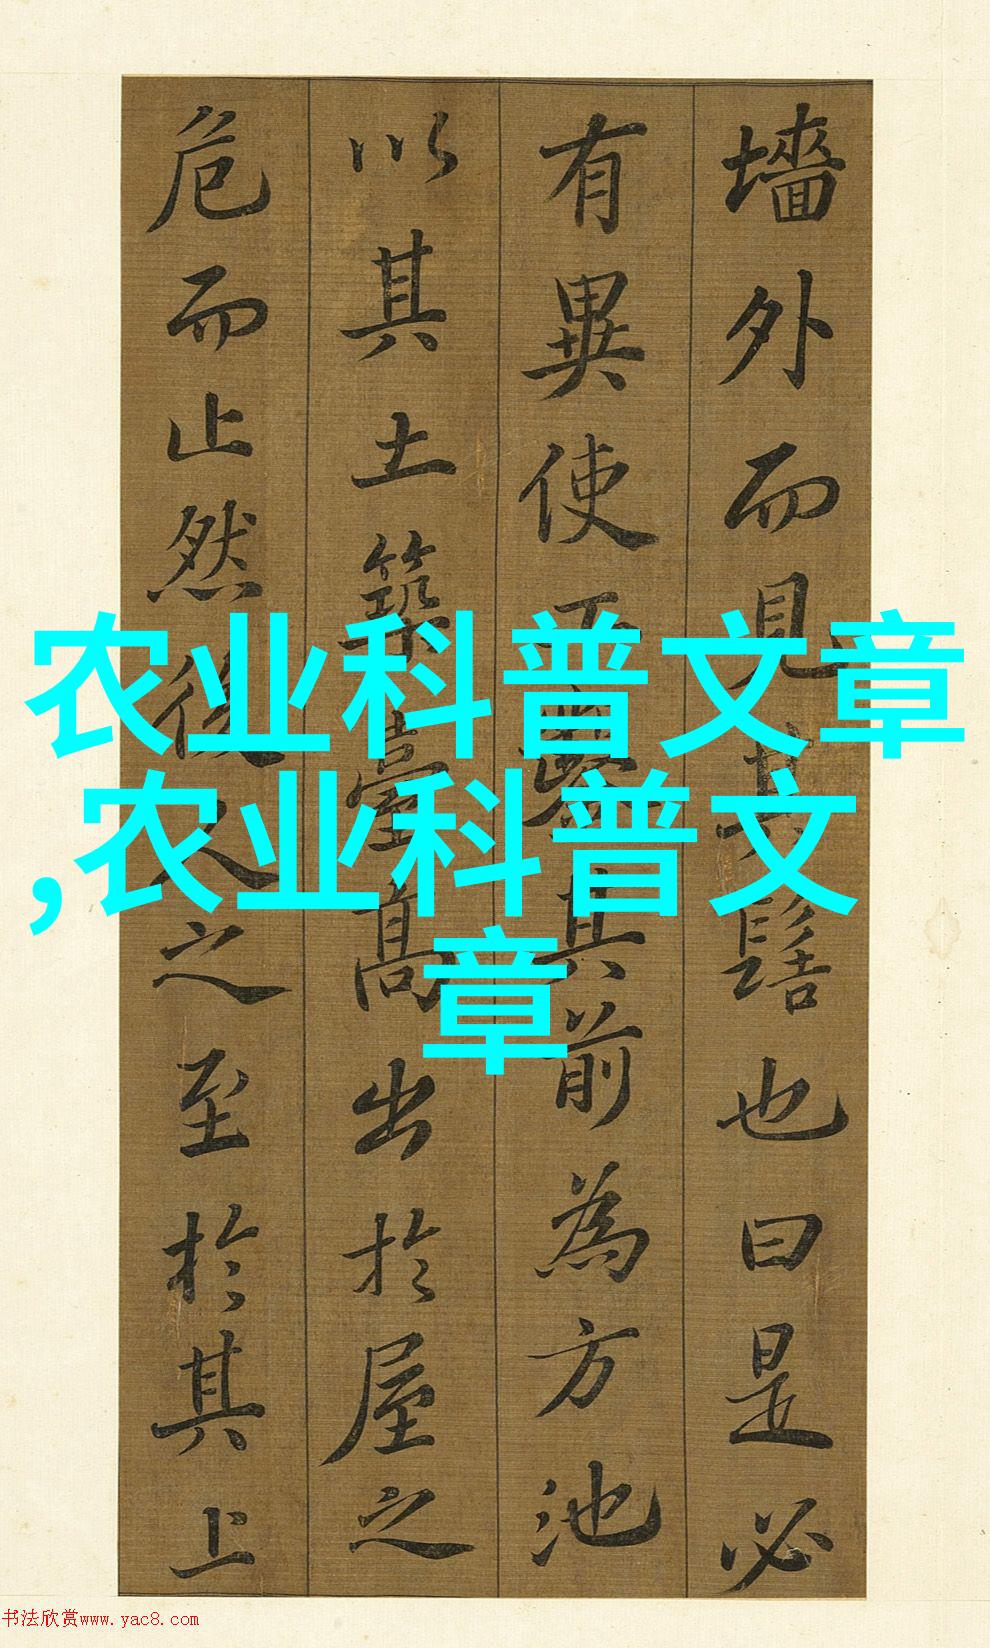 墻外而見其髻也曰是必
有異使工鑿其前為方池
以其土築臺高出於屋之
危而止然後人之至於其上
农业科普文章
,农业科普文
章
书法欣赏www.yac8.com